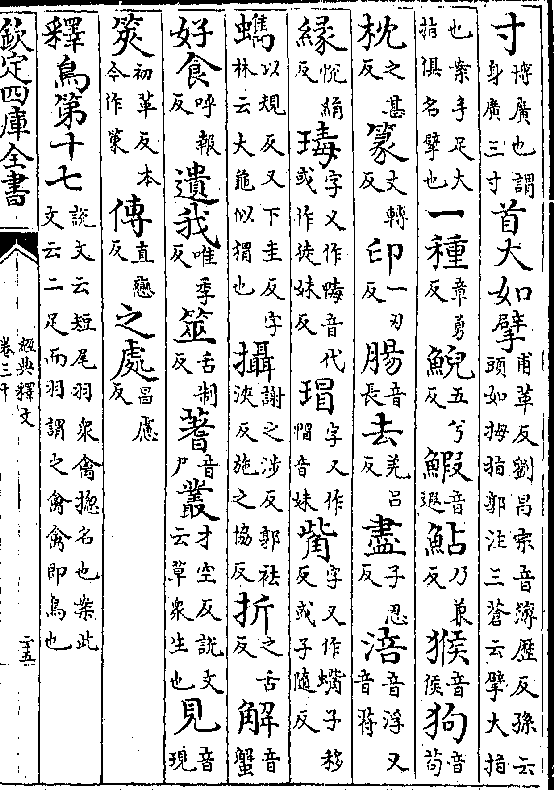 寸博廣也謂身廣三寸首大如擘甫革反劉昌宗音薄歷反孫云頭如拇指郭注三蒼云擘大指
也案手足大指俱名擘也一種章勇反鯢五兮反鰕音遐鮎乃兼反猴音侯狗音苟
枕之甚反篆丈轉反印一刃反腸音長去羌呂反盡子忍反涪音浮又音蒋
緣悅絹反瑇字又作蝳音代或作徒妹反瑁字又作𧌰音妹觜字又作蟕子移反或子隨反
蠵以規反又下圭反字林云大龜似猬也攝謝之涉反郭祛浹反施之協反折之舌反解音蟹
好食呼報反遺我唯季反筮舌制反蓍音尸叢才空反說文云草衆生也見音現
筴初革反本今作策傳直戀反之處昌慮反
釋鳥第十七說文云短尾羽衆禽總名也案此文云二足而羽謂之禽禽即鳥也
欽定四庫全書
經典釋文
卷三十
二十五